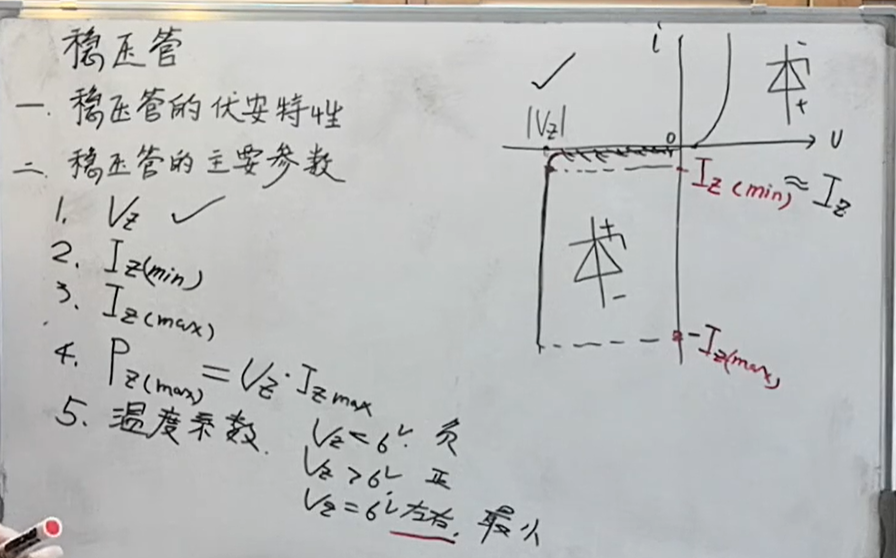 稳压管
一. 稳压管的伏安特性
二. 稳压管的主要参数
1. Vz ✓
2. Iz(min)
3. Iz(max)
4. Pz(max) = Vz · Iz max
5. 温度系数.
Vz < 6V. 负
Vz > 6V 正
Vz = 6V左右. 最小
i
✓
|Vz|
0
U
-
+
-Iz(min) ≈ Iz
+
-
-Iz(max)